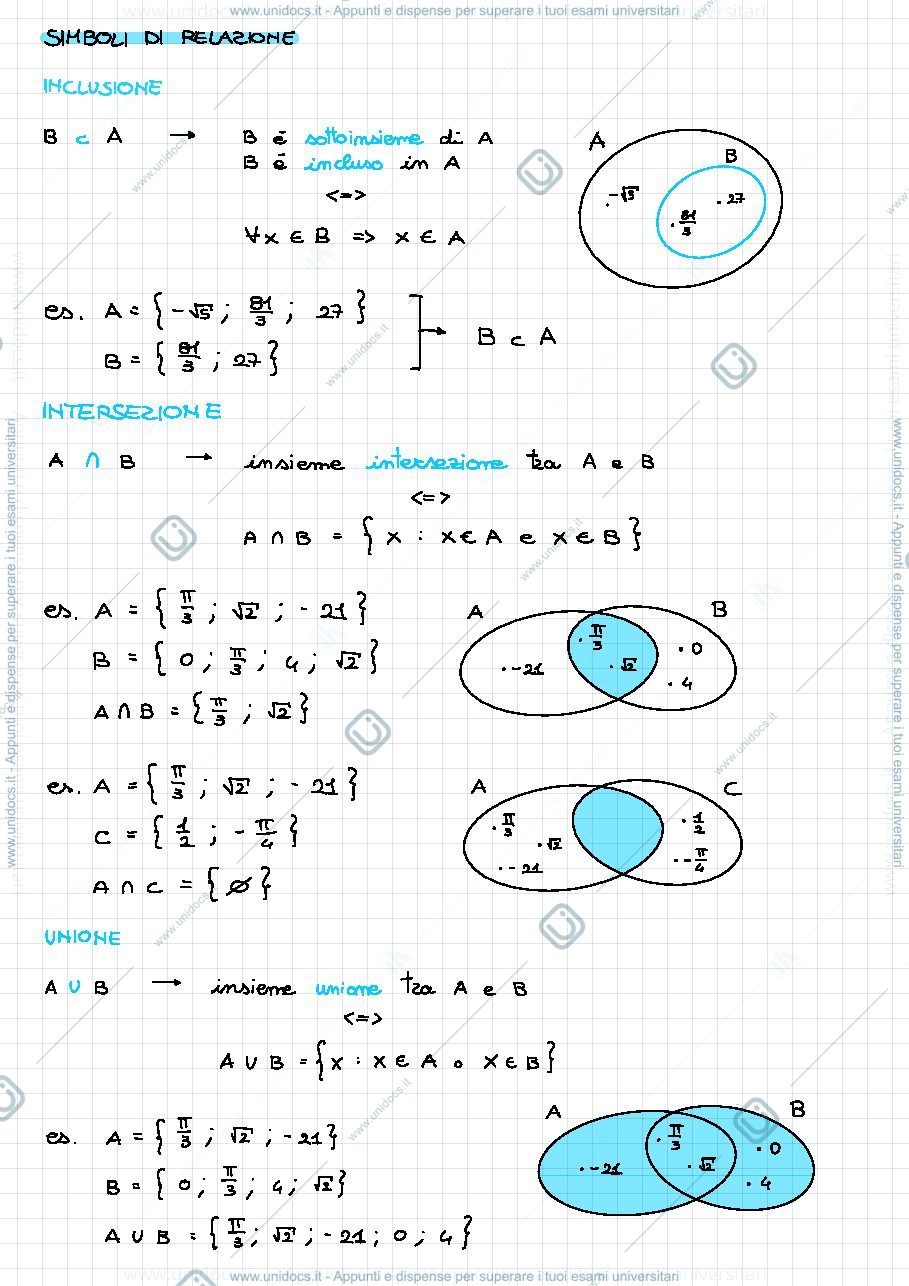 www.unidocs.it - Appunti e dispense per superare i tuoi esami universitari
SIMBOLI DI RELAZIONE
INCLUSIONE
B ⊂ A → B è sottoinsieme di A
B è incluso in A
<=>
∀x ∈ B => x ∈ A
A
B
-√5
27
81/3
es. A = { -√5 ; 81/3 ; 27 }
B = { 81/3 ; 27 }
B ⊂ A
INTERSEZIONE
A ∩ B → insieme intersezione tra A e B
<=>
A ∩ B = { x : x ∈ A e x ∈ B }
es. A = { π/3 ; √2 ; -21 }
B = { 0 ; π/3 ; 4 ; √2 }
A ∩ B = { π/3 ; √2 }
A B
π/3
0
-21 √2
4
es. A = { π/3 ; √2 ; -21 }
C = { 1/2 ; -π/4 }
A ∩ C = { ∅ }
A C
π/3 1/2
√2
-21 -π/4
UNIONE
A ∪ B → insieme unione tra A e B
<=>
A ∪ B = { x : x ∈ A o x ∈ B }
es. A = { π/3 ; √2 ; -21 }
B = { 0 ; π/3 ; 4 ; √2 }
A ∪ B = { π/3 ; √2 ; -21 ; 0 ; 4 }
A B
π/3
0
-21 √2
4
www.unidocs.it - Appunti e dispense per superare i tuoi esami universitari